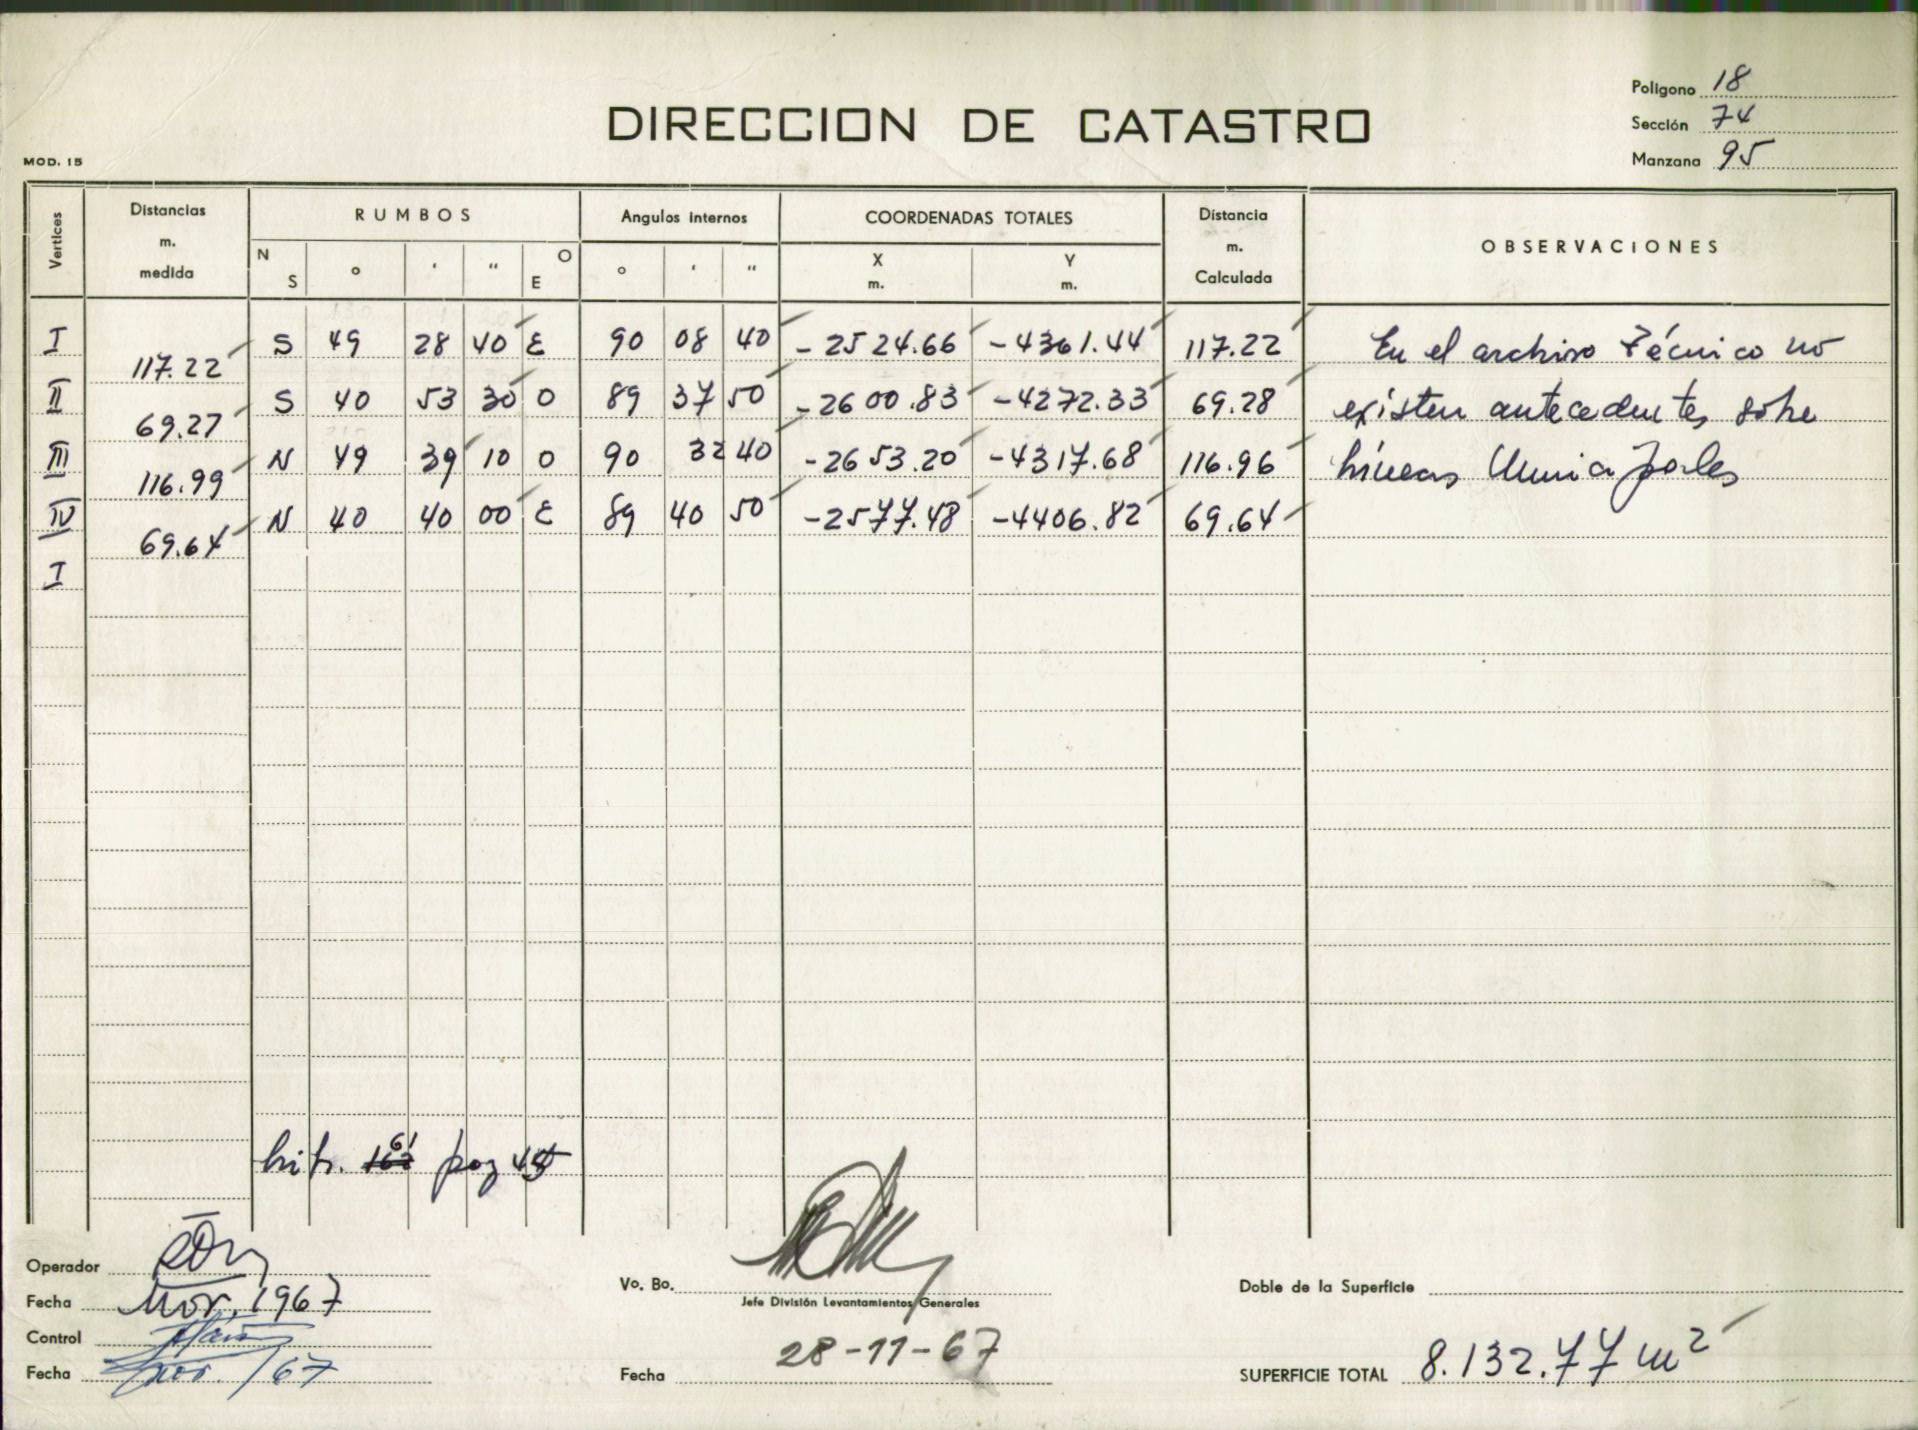 Polígono 18
DIRECCION DE CATASTRO
Sección 74
MOD. 15
Manzana 95
Vertices Distancias m. medida RUMBOS Angulos internos COORDENADAS TOTALES Distancia m. Calculada OBSERVACIONES
N S ° ' " O E ° ' " X m. Y m.
I S 49 28 40 E 90 08 40 -2524.66 -4361.44 117.22 En el archivo Técnico no
117.22
II S 40 53 30 O 89 37 50 -2600.83 -4272.33 69.28 existen antecedentes sobre
69.27
III N 49 39 10 O 90 32 40 -2653.20 -4317.68 116.96 líneas Municipales
116.99
IV N 40 40 00 E 89 40 50 -2577.48 -4406.82 69.64
69.64
I
61 pag 45
Operador
Fecha Nov. 1967
Control
Fecha Nov. /67
Vo. Bo.
Jefe División Levantamientos Generales
Fecha 28-11-67
Doble de la Superficie
SUPERFICIE TOTAL 8.132.77 m²